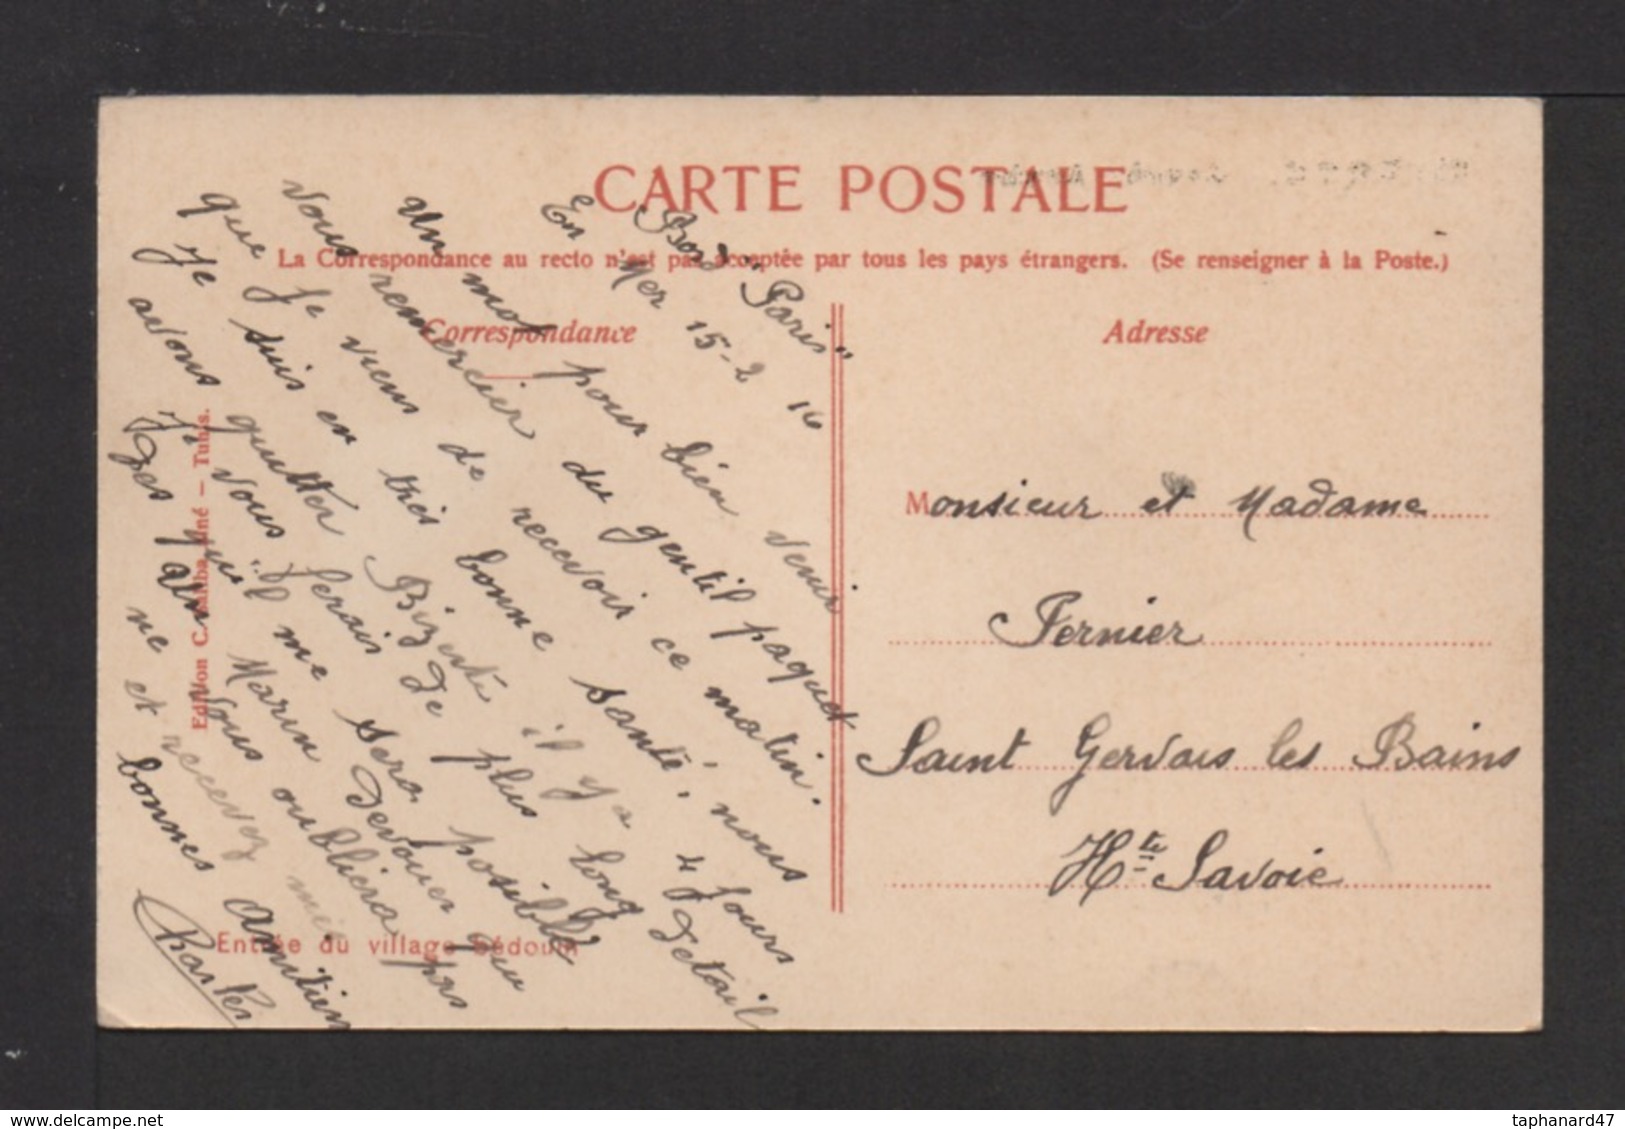 CARTE POSTALE
La Correspondance au recto n'est pas acceptée par tous les pays étrangers. (Se renseigner à la Poste.)
Correspondance
Adresse
Bord "Paris"
En Mer 15-2 16
Un mot pour bien venir
vous remercier du gentil paquet
que je viens de recevoir ce matin.
Je suis en très bonne santé, nous
avons quitter Bizerte il y a 4 jours
Je vous ferais de plus long detail
des qu'il me sera posible
un Marin devouer qui
ne vous oubliera pas
et recevez mes
bonnes amitiers
Charles
Monsieur et Madame
Fernier
Saint Gervais les Bains
Hte Savoie
Edition C. ainé — Tunis.
Entrée du village bédouin
delcampe.net
taphanard47